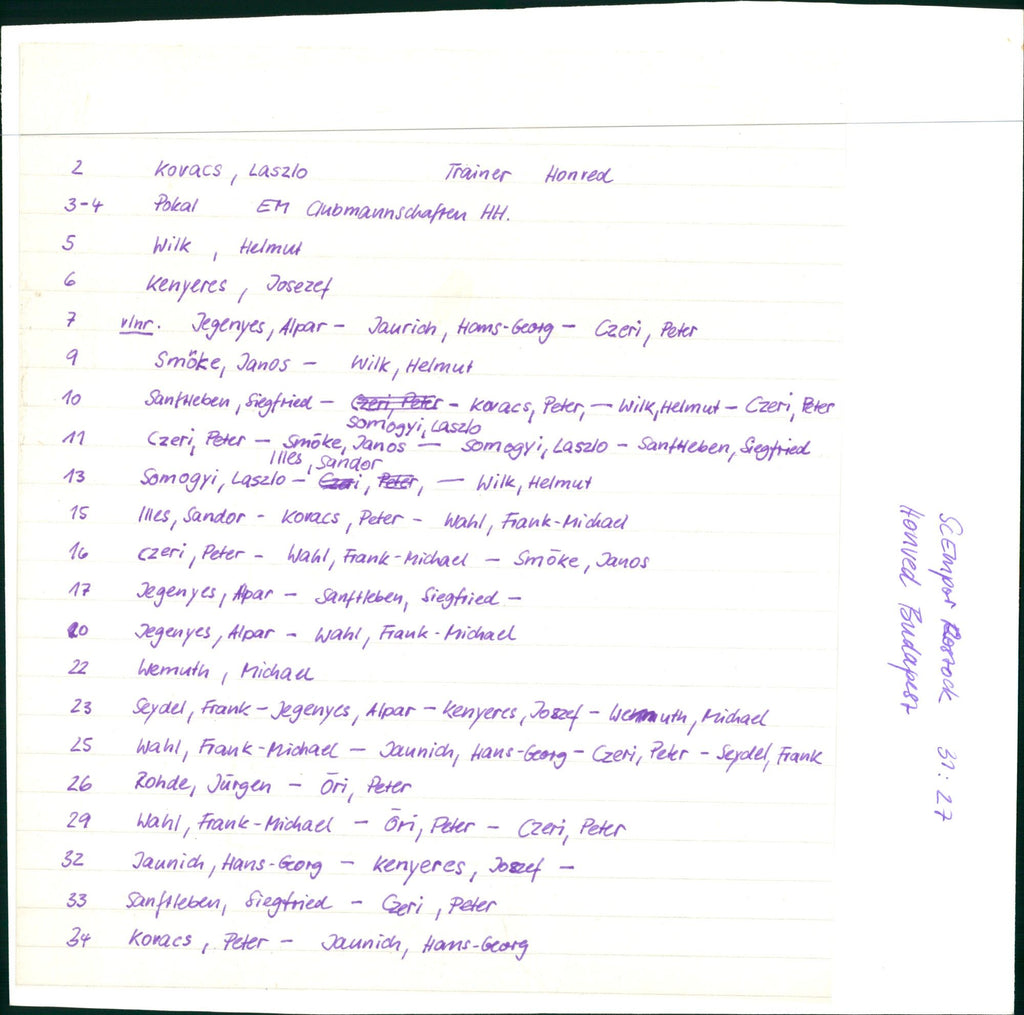 2 Kovacs, Laszlo Trainer Honved
3-4 Pokal EM Clubmannschaften HH.
5 Wilk, Helmut
6 Kenyeres, Josezef
7 vlnr. Jegenyes, Alpar - Jaurich, Hans-Georg - Czeri, Peter
9 Smöke, Janos - Wilk, Helmut
10 Sanftleben, Siegfried - Czeri, Peter - Kovacs, Peter, - Wilk, Helmut - Czeri, Peter
Somogyi, Laszlo
11 Czeri, Peter - Smöke, Janos - Somogyi, Laszlo - Sanftleben, Siegfried
Illes, Sandor
13 Somogyi, Laszlo - Czeri, Peter, - Wilk, Helmut
15 Illes, Sandor - Kovacs, Peter - Wahl, Frank-Michael
16 Czeri, Peter - Wahl, Frank-Michael - Smöke, Janos
17 Jegenyes, Alpar - Sanftleben, Siegfried -
20 Jegenyes, Alpar - Wahl, Frank-Michael
22 Wemuth, Michael
23 Seydel, Frank - Jegenyes, Alpar - Kenyeres, Joszef - Wermuth, Michael
25 Wahl, Frank-Michael - Jaunich, Hans-Georg - Czeri, Peter - Seydel, Frank
26 Rohde, Jürgen - Öri, Peter
29 Wahl, Frank-Michael - Öri, Peter - Czeri, Peter
32 Jaunich, Hans-Georg - Kenyeres, Joszef -
33 Sanftleben, Siegfried - Czeri, Peter
34 Kovacs, Peter - Jaunich, Hans-Georg
SC Empor Rostock 31:27
Honved Budapest